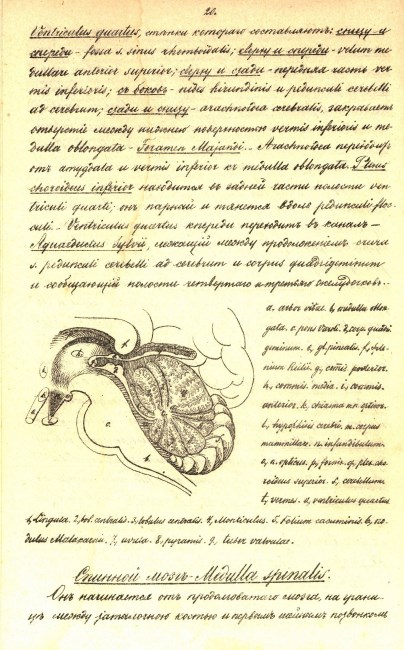 20.
Ventriculus quartus, стѣнки котораго составляютъ: снизу и
спереди - fossa s. sinus rhomboidalis; сверху и спереди - velum me-
dullare anterior superior; сверху и сзади - передняя часть ver-
mis inferioris; съ боковъ - nidus hirundinis и pedunculi cerebelli
ad cerebrum; сзади и снизу - arachnoidea cerebralis, закрываетъ
отверстіе между нижнею поверхностью vermis inferioris и me-
dulla oblongata - Foramen Majandi. Arachnoidea переходитъ
отъ amygdala и vermis inferior къ medulla oblongata. Plexus
choroideus inferior находится въ задней части полости ven-
triculi quarti; онъ парный и тянется вдоль pedunculi floc-
culi. - Ventriculus quartus кпереди переходитъ въ каналъ -
Aquaeductus Sylvii, лежащій между продолженіемъ crura
s. pedunculi cerebelli ad cerebrum и corpus quadrigeminum
и сообщающій полости четвертаго и третьяго желудочковъ.
a. arbor vitae. b, medulla oblon-
gata. c, pons Varoli. d, corp. quadri-
geminum. e, gl. pinealis. f, sple-
nium g, comis. posterior.
h, commis. media. i, commis.
anterior. k, chiasma nn. opticor.
l, hypophisis cerebri. m, corpus
mammillare. n. infundibulum.
o, n. opticus. p, fornix. q, plex. cho-
roideus superior. s, cerebellum.
t, vermis. v, ventriculus quartus
1, Lingula. 2, lob. centralis. 3, lobulus centralis. 4, Monticulus. 5, Folium cacuminis. 6, no-
dulus Malacarni. 7, uvula. 8, pyramis. 9, tuber valvulae.
Спинной мозгъ - Medulla spinalis.
Онъ начинается отъ продолговатаго мозга, на грани-
цѣ между затылочною костью и первымъ шейнымъ позвонкомъ